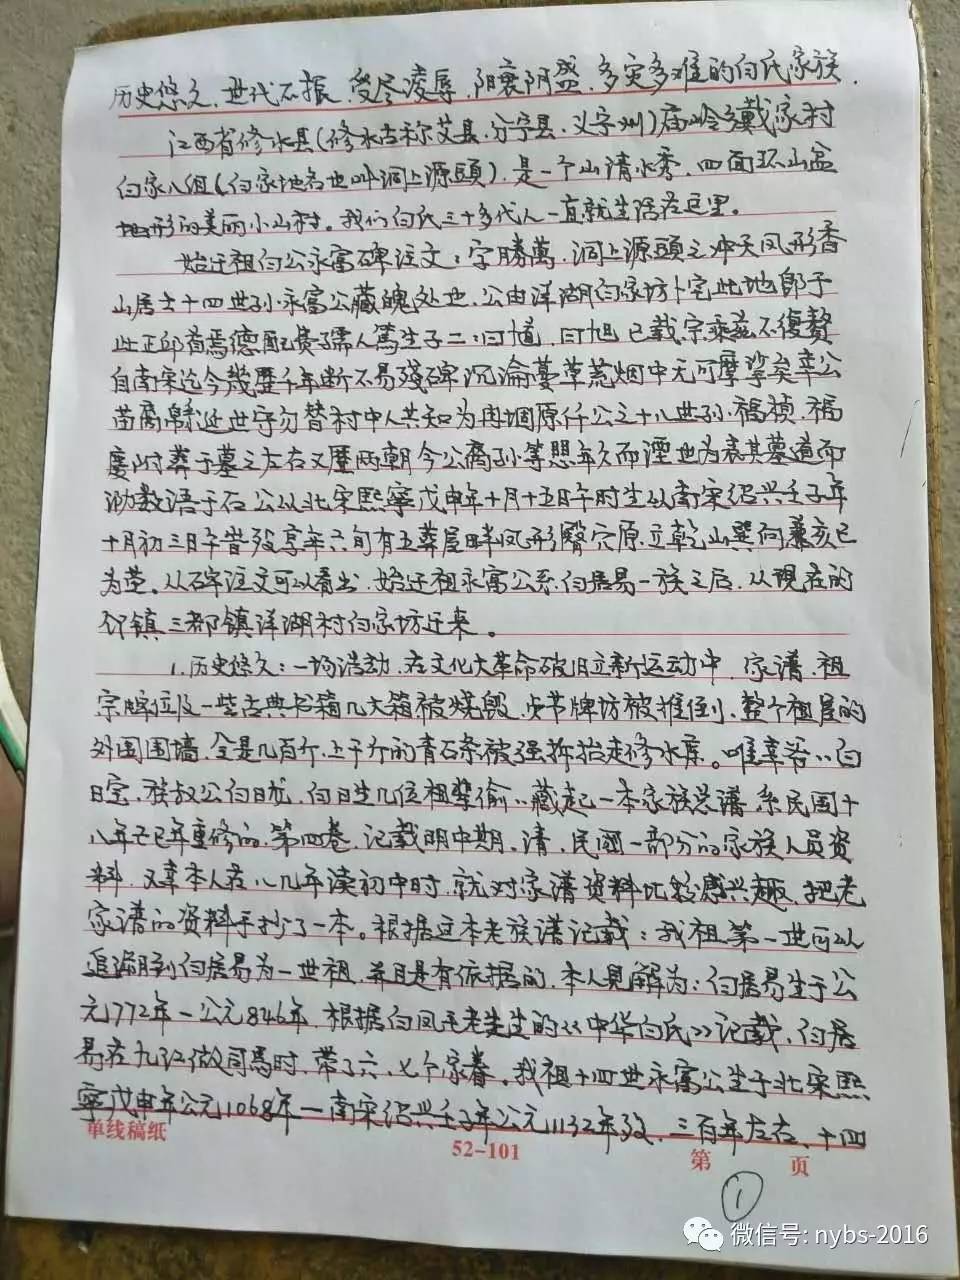 历史悠久，世代不振，受尽凌辱，阳衰阴盛，多灾多难的白氏家族，
江西省修水县（修水古称艾县，分宁县，义宁州）庙岭乡戴家村
白家八组（白家地名也叫洞上源頭），是一个山清水秀，四面环山盆
地形的美丽小山村。我们白氏三十多代人一直就生活在这里。
始迁祖白公永富碑注文：字勝萬，洞上源頭之冲天凤形香
山居士十四世孙永富公藏魄处也，公由洋湖白家坊卜宅此地即于
此正邱首焉德配黄孺人篤生子二：曰 ，曰旭 已载宗乘兹不復赘
自南宋迄今幾歷千年断不易殘碑沉淪蔓草荒烟中无可摩挲矣幸公
苗裔 世守勿替村中人共知为 原仟公之十八世孙福禎，福
慶附葬于墓之左右又歷两朝今公裔孙等想年久而湮也为表其墓道而
泐数语于石 公以北宋熙寧戊申年十月十五日午时生以南宋绍兴壬子年
十月初三日午昔殁享年六旬有五葬屋畔凤形臀穴原立乾山巽向兼亥巳
为茔。从碑注文可以看出，始迁祖永富公系白居易一族之后，从现在的
邻镇三都镇洋湖村白家坊迁来。
1.历史悠久：一场浩劫，在文化大革命破旧立新运动中，家谱，祖
宗牌位及一些古典书籍几大箱被烧毁，贞节牌坊被推倒，整个祖屋的
外围围墙，全是几百斤，上千斤的青石条被强拆抬走修水库。唯幸爷〃白
日宝，族叔公白日龙，白日生几位祖辈偷〃藏起一本家族老谱，系民国十
八年己巳年重修的，第四卷，记载明中期，清，民國一部分的家族人员资
料，又幸本人在八几年读初中时，就对家谱资料比较感兴趣，把老
家谱的资料手抄了一本。根据这本老族谱记载：我祖第一世可以
追溯到白居易为一世祖，并且是有依据的，本人見解为：白居易生于公
元772年—公元846年，根据白凤毛老先生的《中华白氏》记载，白居
易在九江做司馬时，带了六、七个家眷。我祖十四世永富公生于北宋熙
寧戊申年公元1068年—南宋绍兴壬子年公元1132年殁，三百年左右，十四
单线稿纸
52-101
第 页
①
微信号: nybs-2016